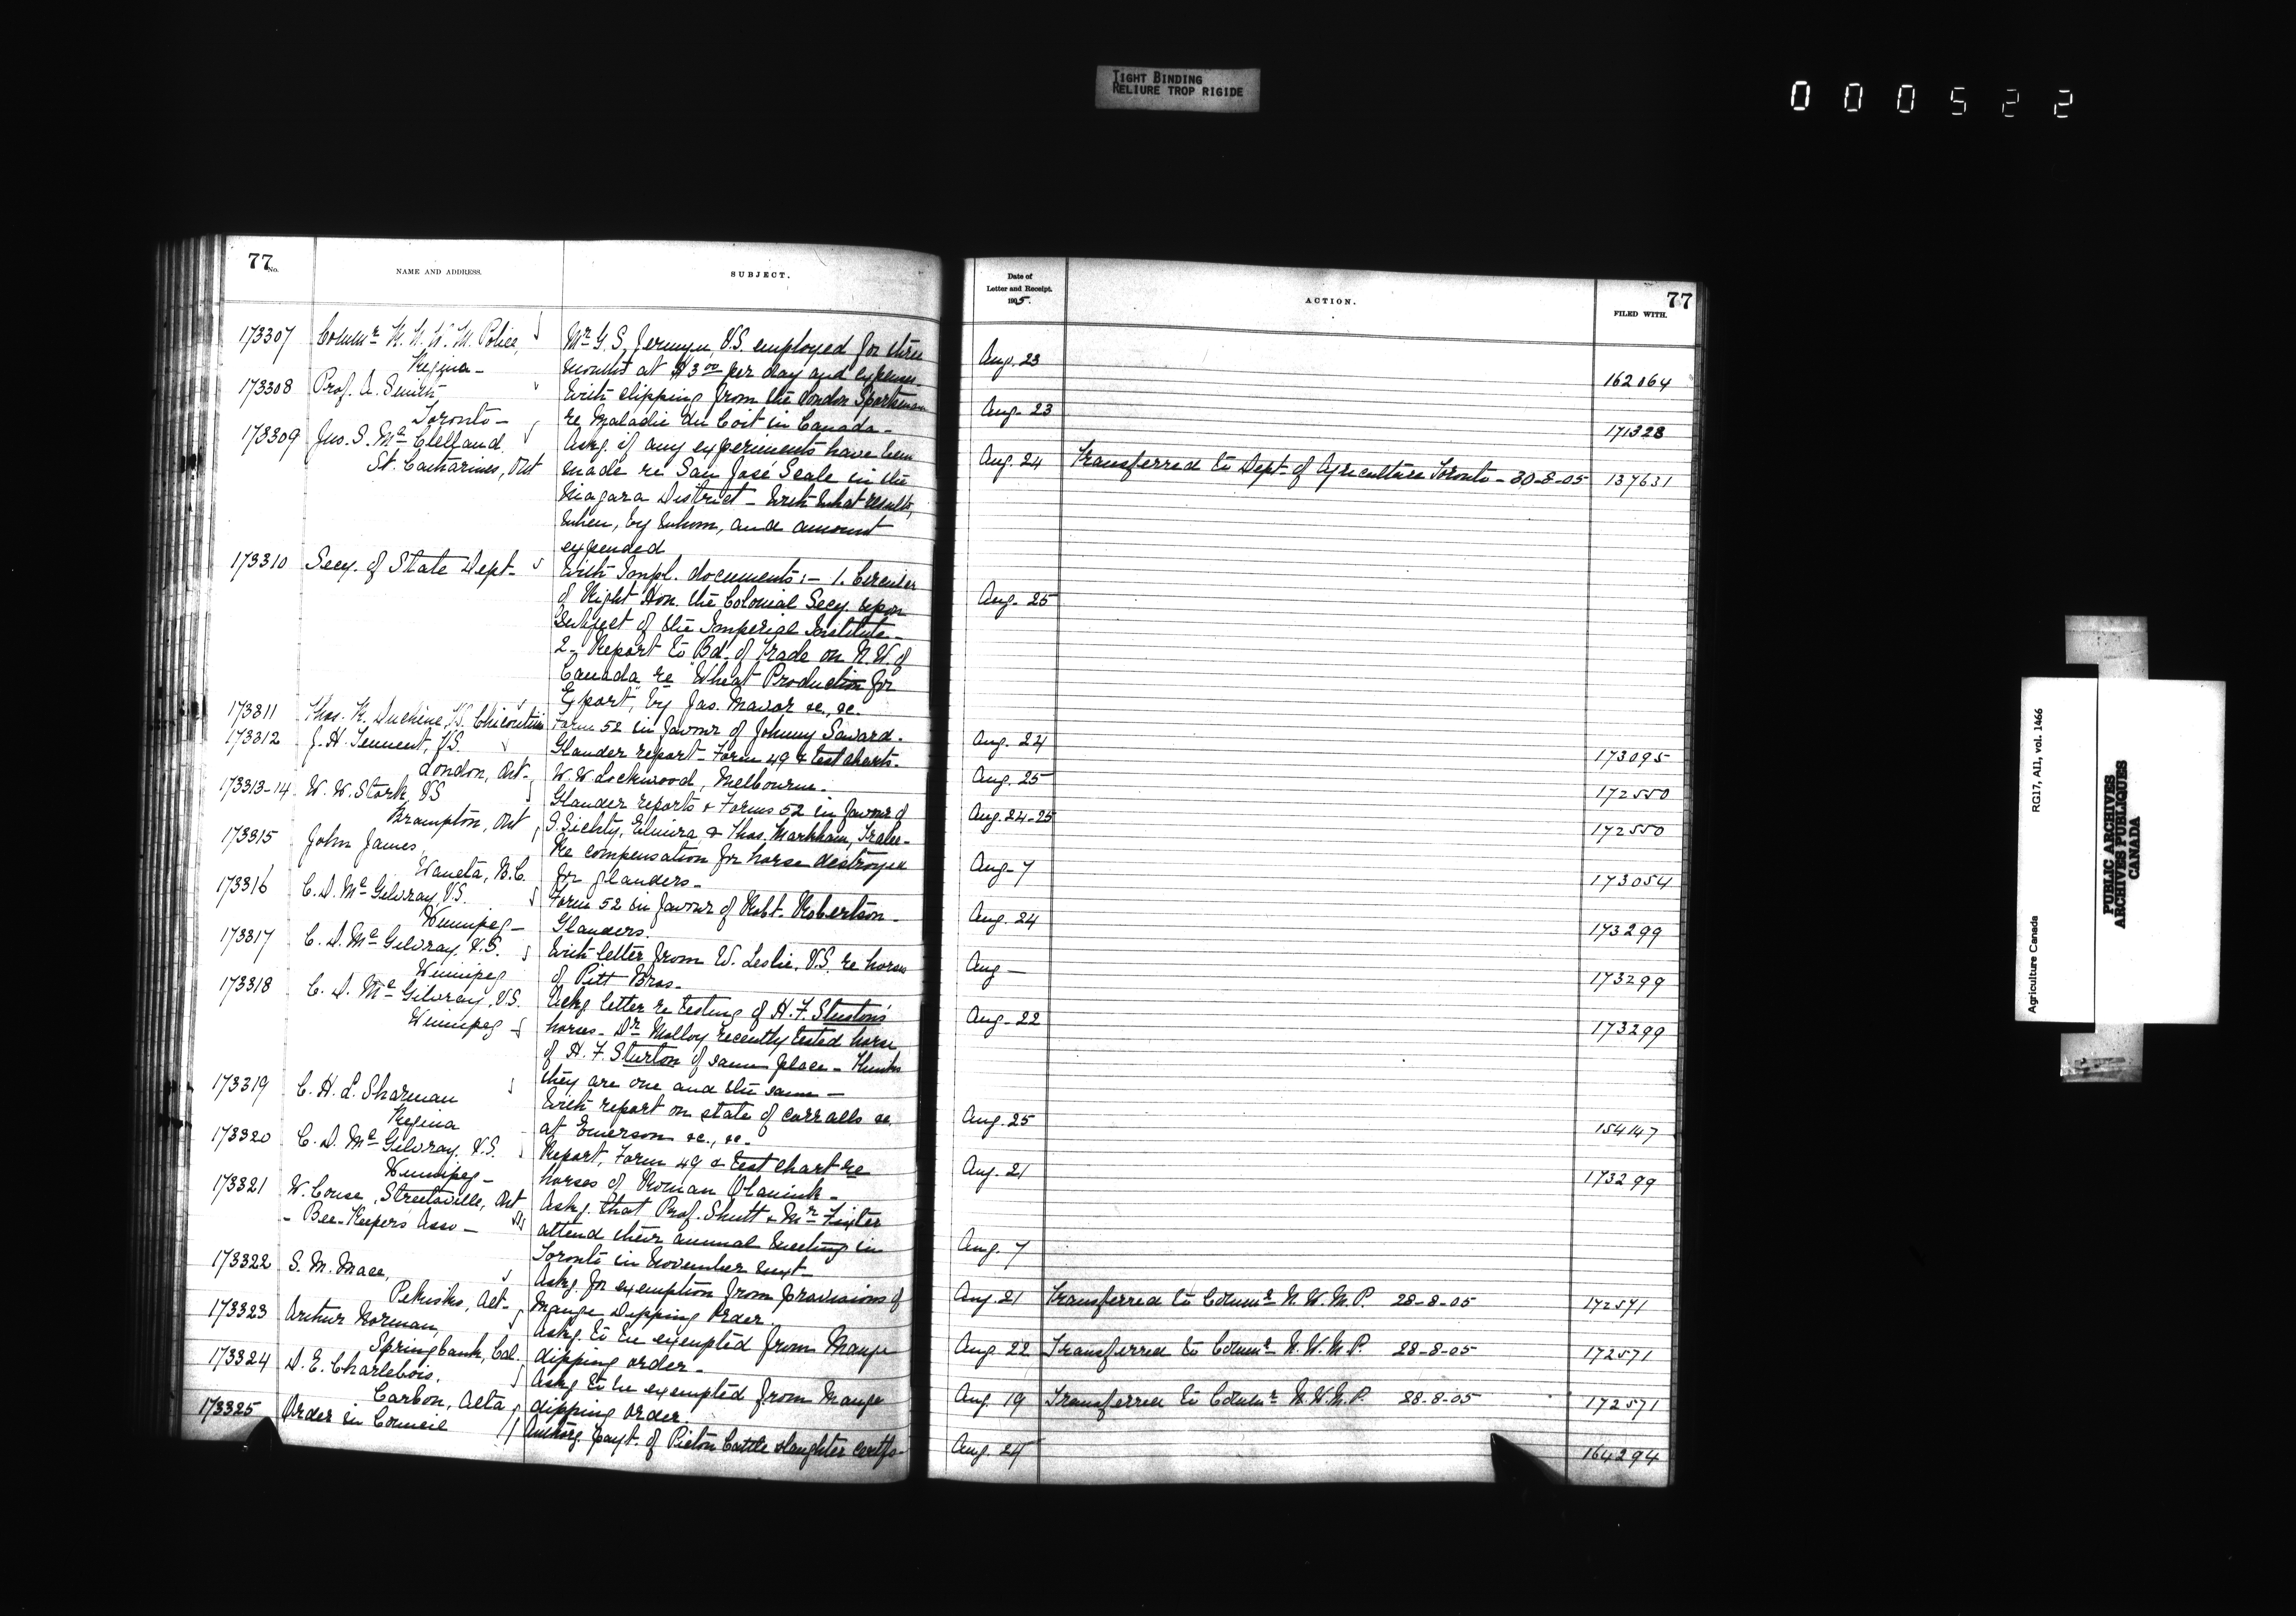 TIGHT BINDING
RELIURE TROP RIGIDE
000522
77
No.
NAME AND ADDRESS.
SUBJECT.
173307 Commr R. N. W. M. Police,
Regina -
Mr G. S. Jermyn, V.S. employed for three
months at $3.00 per day and expenses
173308 Prof. A. Smith
Toronto -
With clipping from the London Sportsman
re Maladie du Coit in Canada -
173309 Jno. S. McClelland
St. Catharines, Ont
Askg. if any experiments have been
made re San José Scale in the
Niagara District - With what results,
when, by whom, and amount
expended
173310 Secy. of State Dept. -
With Impl. documents: - 1. Circular
of Right Hon. the Colonial Secy. upon
subject of the Imperial Institute -
2 - Report to Bd. of Trade on N.W. of
Canada re "Wheat Production for
Export", by Jas. Mavor &c., &c.
173311 Thos. K. Duchene, V.S. Chicoutimi
Form 52 in favour of Johnny Savard.
173312 J. H. Tennent, V.S.
London, Ont -
Glander report - Form 49 & test charts.
W. W. Lockwood, Melbourne.
173313-14 W. W. Stork, V.S
Brampton, Ont
Glander reports & Forms 52 in favour of
I. Zichty, Elmira & Thos. Markham,
173315 John James,
Waneta, B.C.
Re compensation for horse destroyed
for glanders -
173316 C. D. McGilvray, V.S.
Winnipeg -
Form 52 in favour of Robt. Robertson -
Glanders.
173317 C. D. McGilvray, V.S.
Winnipeg
With letter from W. Leslie, V.S. re horses
of Pitt Bros. -
173318 C. D. McGilvray, V.S.
Winnipeg -
Ackg. letter re testing of H. F. Stuston's
horses - Dr. Molloy recently tested horse
of H. F. Sturton of same place - Thinks
they are one and the same -
173319 C. H. L. Sharman
Regina
With report on state of corralls &c.
at Emerson &c., &c. -
173320 C. D. McGilvray, V.S.
Winnipeg -
Report, Form 49 & test chart re
horses of Roman Olanink -
173321 W. Couse, Streetsville, Ont
- Bee-Keepers Asso -
Askg. that Prof. Shutt & Mr. Fixter
attend their annual meeting in
Toronto in November next -
173322 S. M. Mace,
Pekisko, Alt -
Askg. for exemption from provisions of
Mange Dipping Order.
173323 Arthur Norman,
Springbank, Cal.
Askg. to be exempted from Mange
dipping order -
173324 D. E. Charlebois,
Carbon, Alta
Askg. to be exempted from Mange
dipping order.
173325 Order in Council
Authorg. payt. of Pictou Cattle slaughter certfs -
Date of
Letter and Receipt.
1905.
ACTION.
77
FILED WITH.
Aug. 23 162064
Aug - 23 171328
Aug. 24 Transferred to Dept. of Agriculture Toronto - 30-8-05 137631
Aug - 25
Aug. 24 173095
Aug. 25 172550
Aug. 24-25 172550
Aug - 7 173054
Aug. 24 173299
Aug - 173299
Aug - 22 173299
Aug. 25 154147
Aug. 21 173299
Aug. 7
Aug. 21 Transferred to Commr N. W. M. P. 28-8-05 172571
Aug. 22 Transferred to Commr N. W. M. P. 28-8-05 172571
Aug. 19 Transferred to Commr N. W. M. P. 28-8-05 172571
Aug. 24 164294
Agriculture Canada RG17, AII, vol. 1466
PUBLIC ARCHIVES
ARCHIVES PUBLIQUES
CANADA